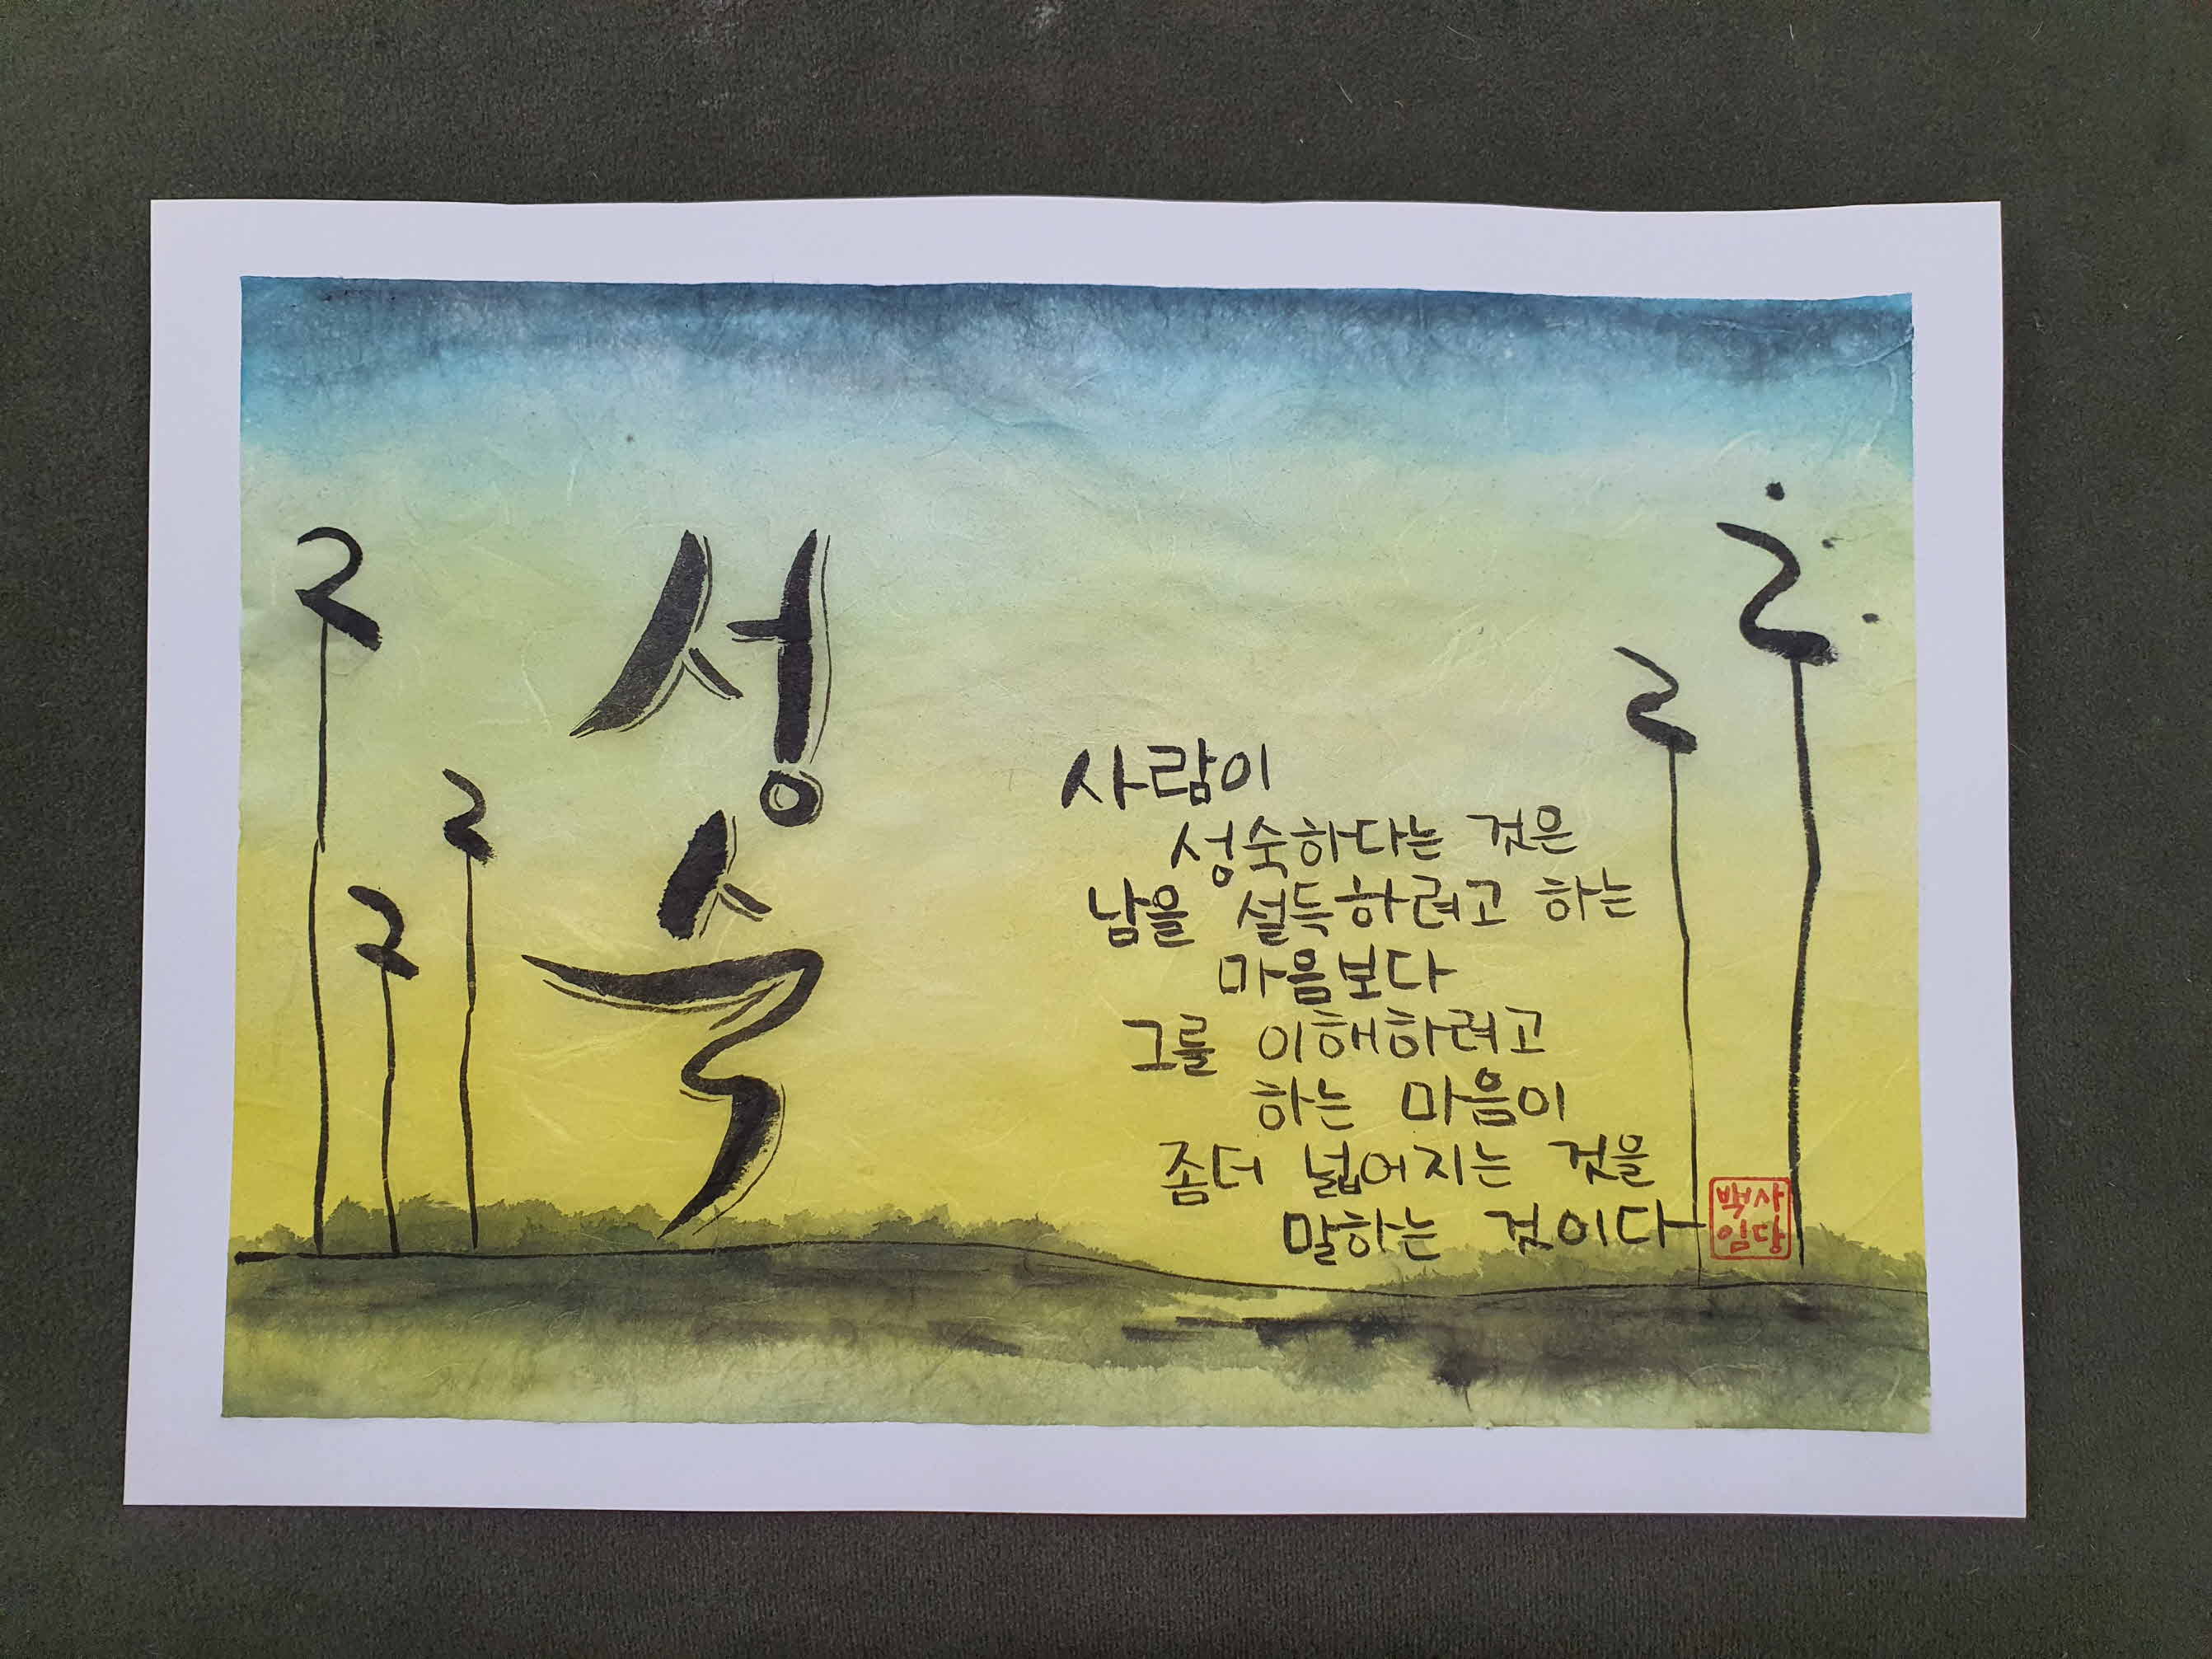 성숙
사람이
성숙하다는 것은
남을 설득하려고 하는
마음보다
그를 이해하려고
하는 마음이
좀더 넓어지는 것을
말하는 것이다
백사
임당